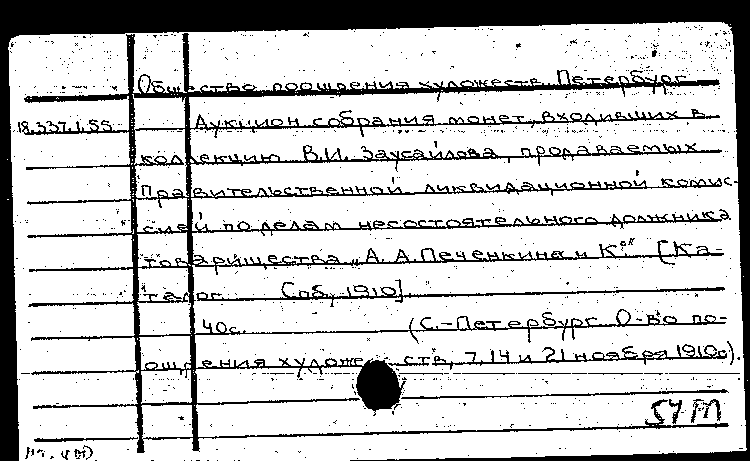 Общество поощрения художеств. Петербург.
18.337.1.55 Аукцион собрания монет, входивших в
коллекцию В.И. Заусайлова, продаваемых
Правительственной ликвидационной комис-
сией по делам несостоятельного должника
товарищества „А. А. Печенкина и К°." [Ка-
талог. Спб, 1910].
40с. (С.-Петербург. О-во по-
ощрения художеств, 7, 14 и 21 ноября 1910г).
57М